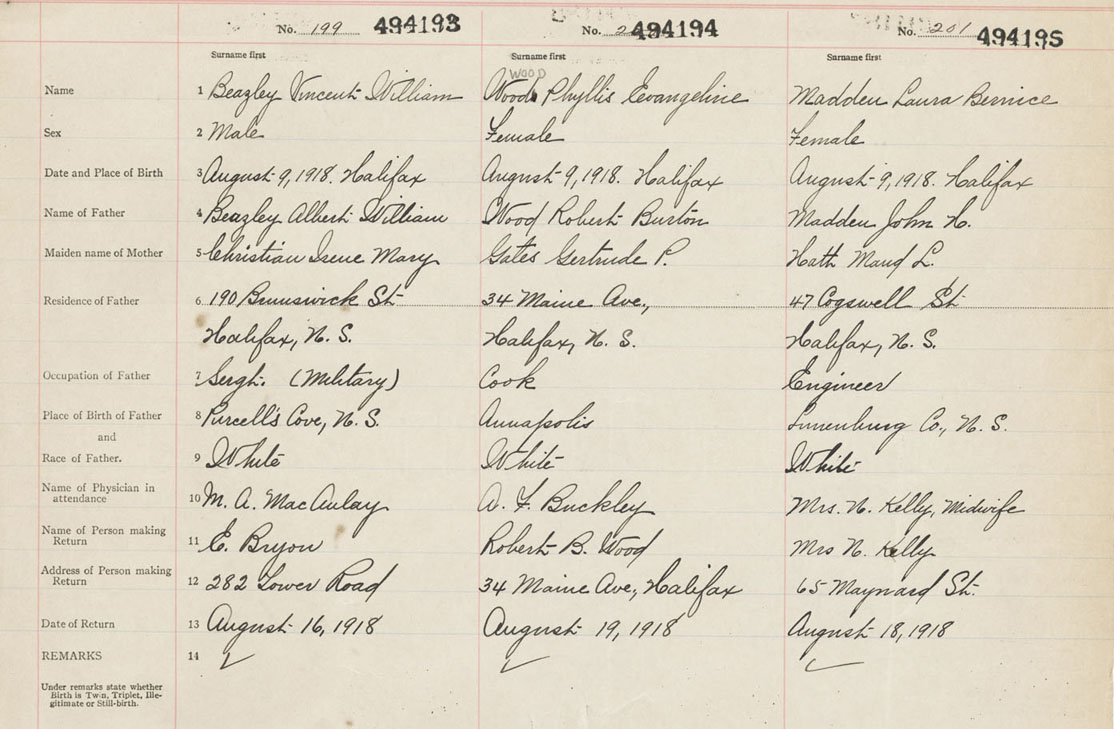 No. 199 494193 No. 2 494194 No. 201 494195
Surname first Surname first Surname first
WOOD
Name 1 Beazley Vincent William Wood Phyllis Evangeline Madden Laura Bernice
Sex 2 Male Female Female
Date and Place of Birth 3 August 9, 1918. Halifax August 9, 1918. Halifax August 9, 1918. Halifax
Name of Father 4 Beazley Albert William Wood Robert Burton Madden John H.
Maiden name of Mother 5 Christian Irene Mary Gates Gertrude P. Hath Maud L.
Residence of Father 6 190 Brunswick St 34 Maine Ave., 47 Cogswell St
Halifax, N. S. Halifax, N. S. Halifax, N. S.
Occupation of Father 7 Sergt. (Military) Cook Engineer
Place of Birth of Father 8 Purcell's Cove, N. S. Annapolis Lunenburg Co., N. S.
and
Race of Father. 9 White White White
Name of Physician in
attendance 10 M. A. MacAulay A. F. Buckley Mrs. N. Kelly, Midwife
Name of Person making
Return 11 E. Bryon Robert B. Wood Mrs N. Kelly
Address of Person making
Return 12 282 Tower Road 34 Maine Ave., Halifax 65 Maynard St.
Date of Return 13 August 16, 1918 August 19, 1918 August 18, 1918
REMARKS 14
Under remarks state whether
Birth is Twin, Triplet, Ille-
gitimate or Still-birth.